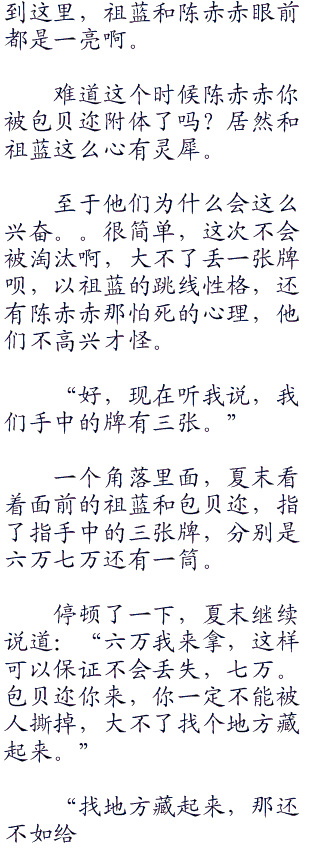 到这里，祖蓝和陈赤赤眼前
都是一亮啊。
难道这个时候陈赤赤你
被包贝迩附体了吗？居然和
祖蓝这么心有灵犀。
至于他们为什么会这么
兴奋。。很简单，这次不会
被淘汰啊，大不了丢一张牌
呗，以祖蓝的跳线性格，还
有陈赤赤那怕死的心理，他
们不高兴才怪。
“好，现在听我说，我
们手中的牌有三张。”
一个角落里面，夏末看
着面前的祖蓝和包贝迩，指
了指手中的三张牌，分别是
六万七万还有一筒。
停顿了一下，夏末继续
说道：“六万我来拿，这样
可以保证不会丢失，七万。
包贝迩你来，你一定不能被
人撕掉，大不了找个地方藏
起来。”
“找地方藏起来，那还
不如给